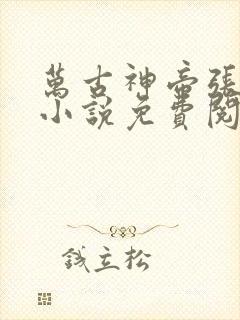 萬古神帝張
小說免費閱
錢立松